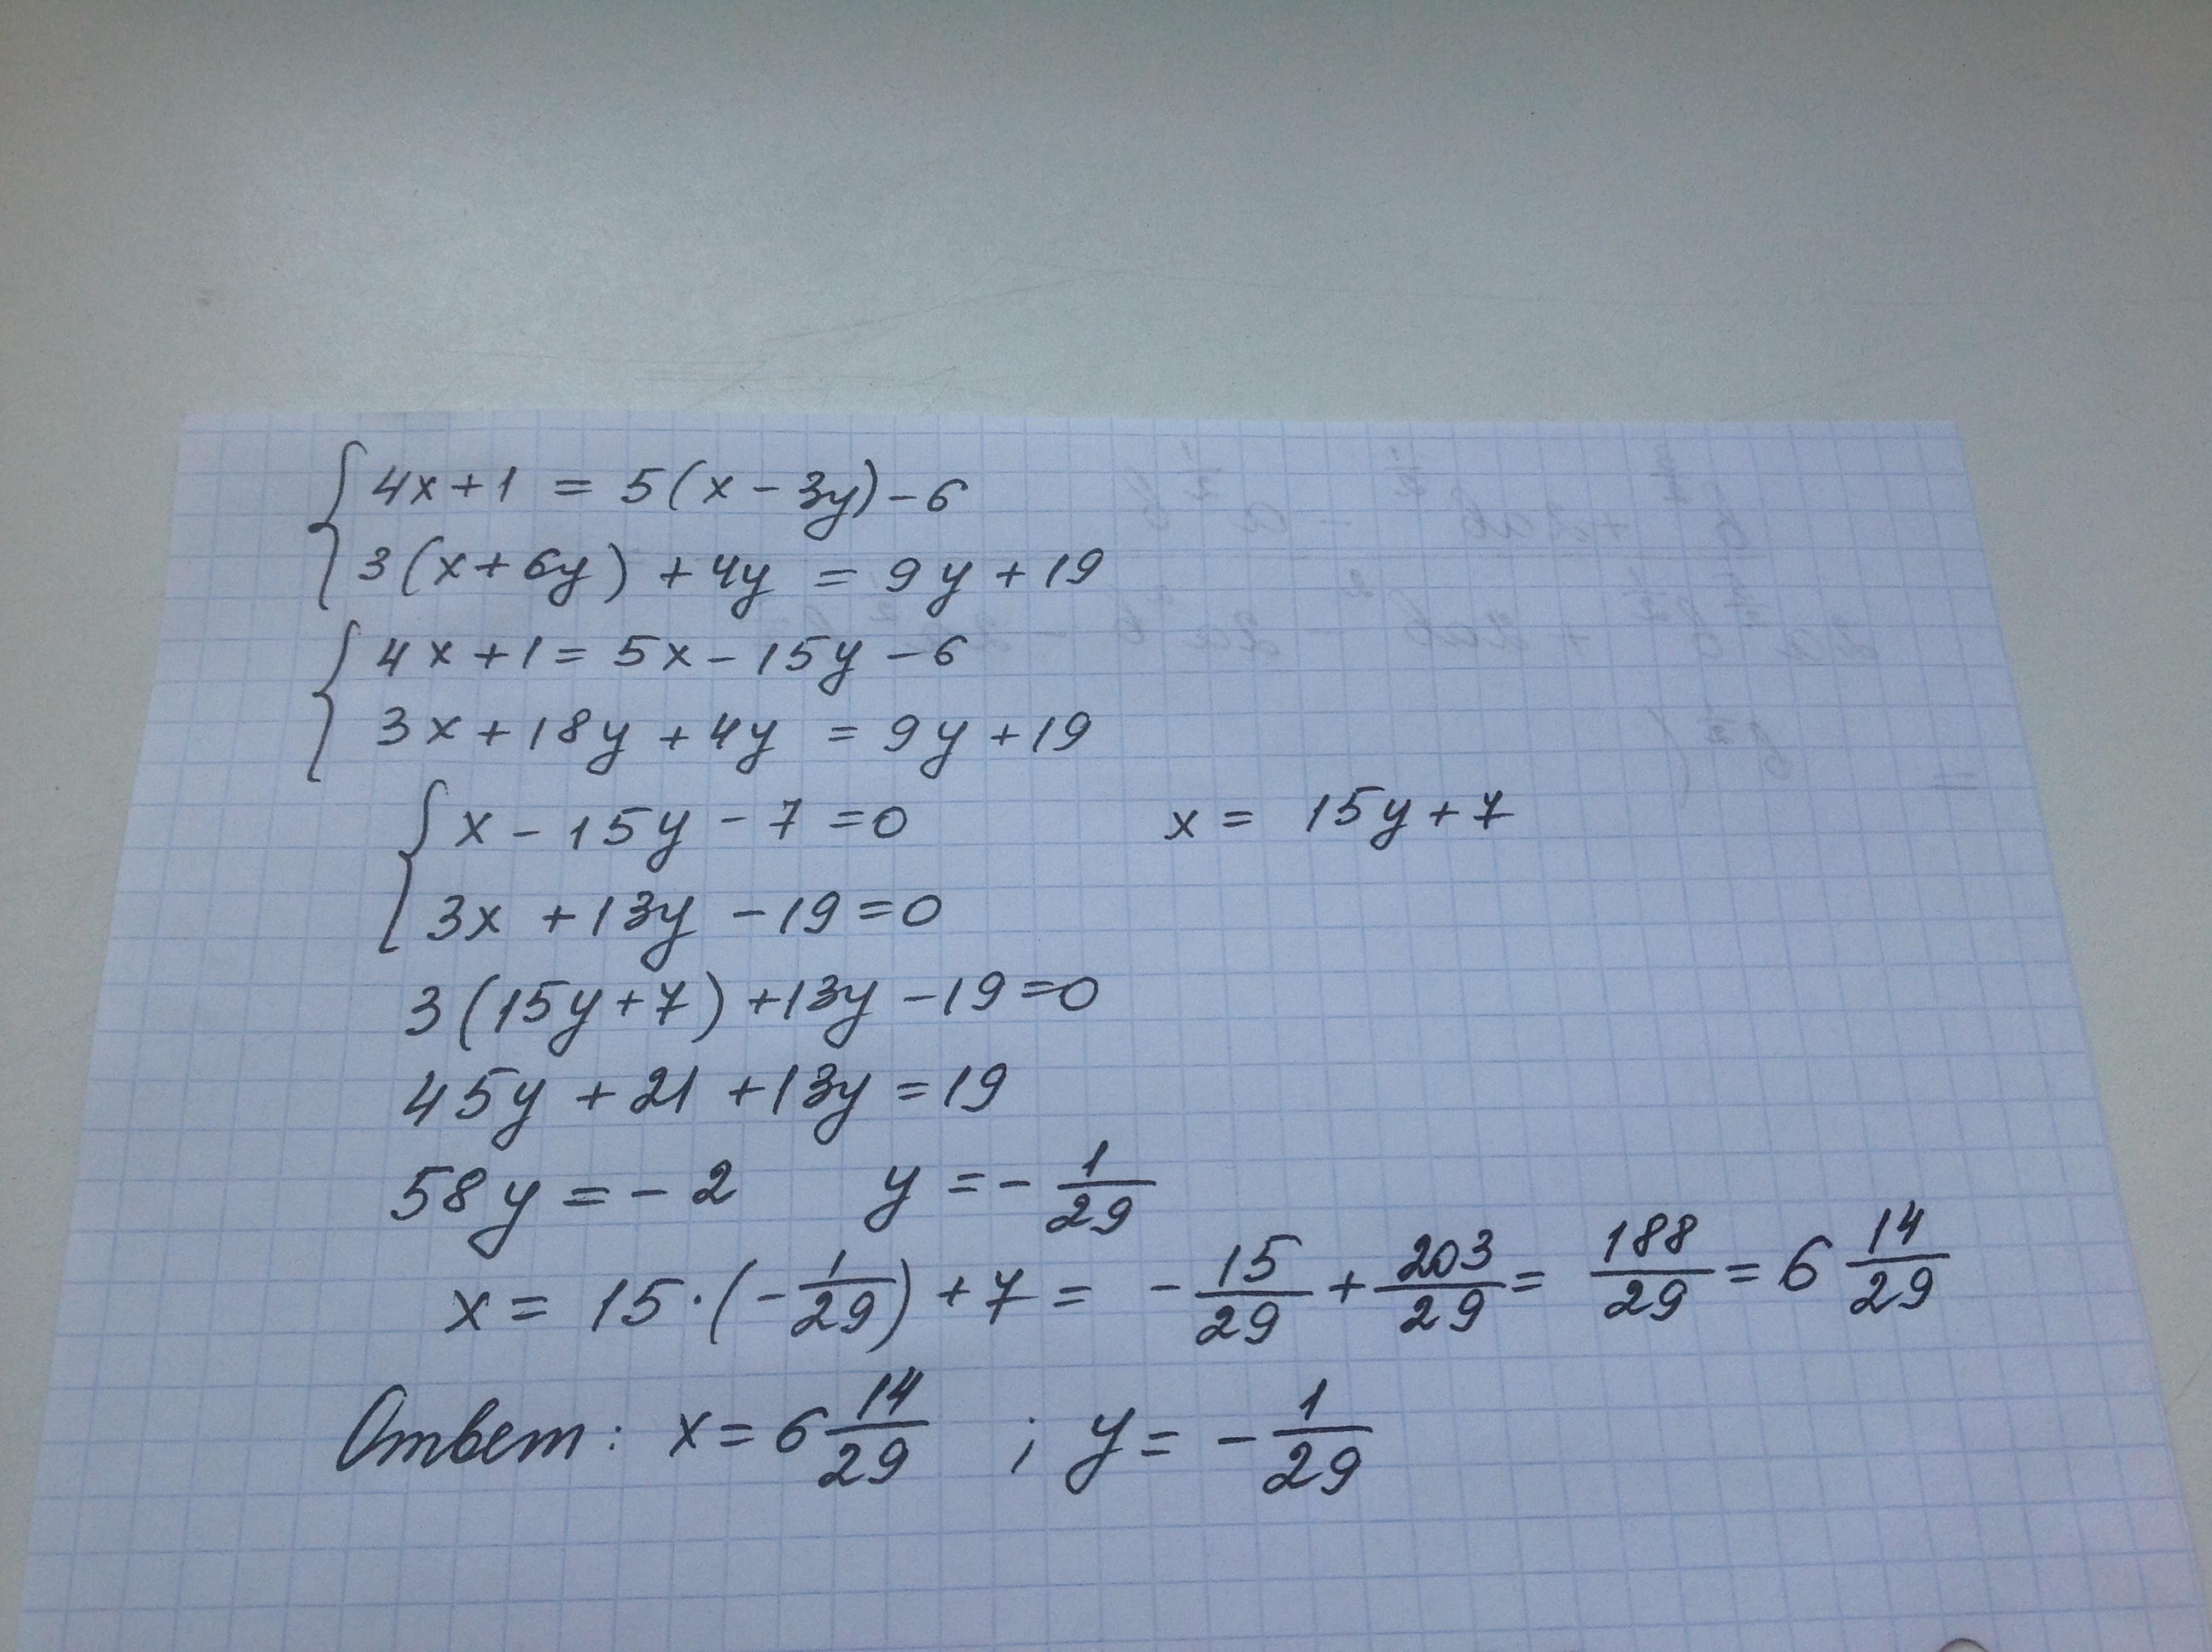 4x+1 = 5(x-3y)-6
3(x+6y)+4y = 9y+19
4x+1=5x-15y-6
3x+18y+4y = 9y+19
x-15y-7=0 x= 15y+7
3x+13y-19=0
3(15y+7)+13y-19=0
45y+21+13y=19
58y=-2 y=-1/29
x= 15·(-1/29)+7= -15/29+203/29=188/29=6 14/29
Ответ: x=6 14/29 ; y=-1/29